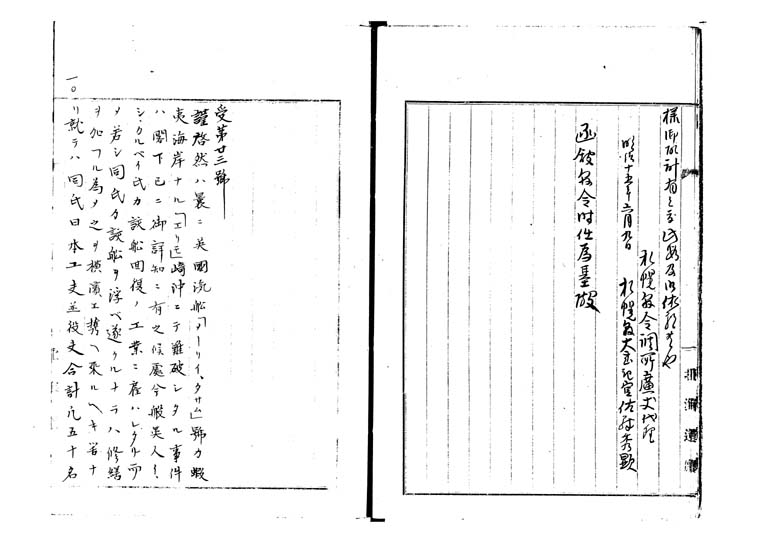 様御取計有之度此段及御依頼候也
札幌県令調所廣丈代理
明治十五年六月九日　札幌県大書記官佐藤秀顕
函館県令時任為基殿
受第廿三號
謹啓然ハ曩ニ英國汽船「ダーリイ、クサム」號カ蝦
夷海岸ナル「エリモ」崎沖ニテ難破シタル事件
ハ閣下已ニ御詳知ニ有之候處今般英人ゼー、
シ、クルベイ氏カ該船回復ノ工業ニ雇ハレタリ而
メ若シ同氏カ該船ヲ浮ベ遂クルナラハ修繕
ヲ加フル為メ之ヲ横濱エ携ヘ来ルヘキ筈ナ
リ就テハ同氏日本工夫並役夫合計凡五十名
一〇